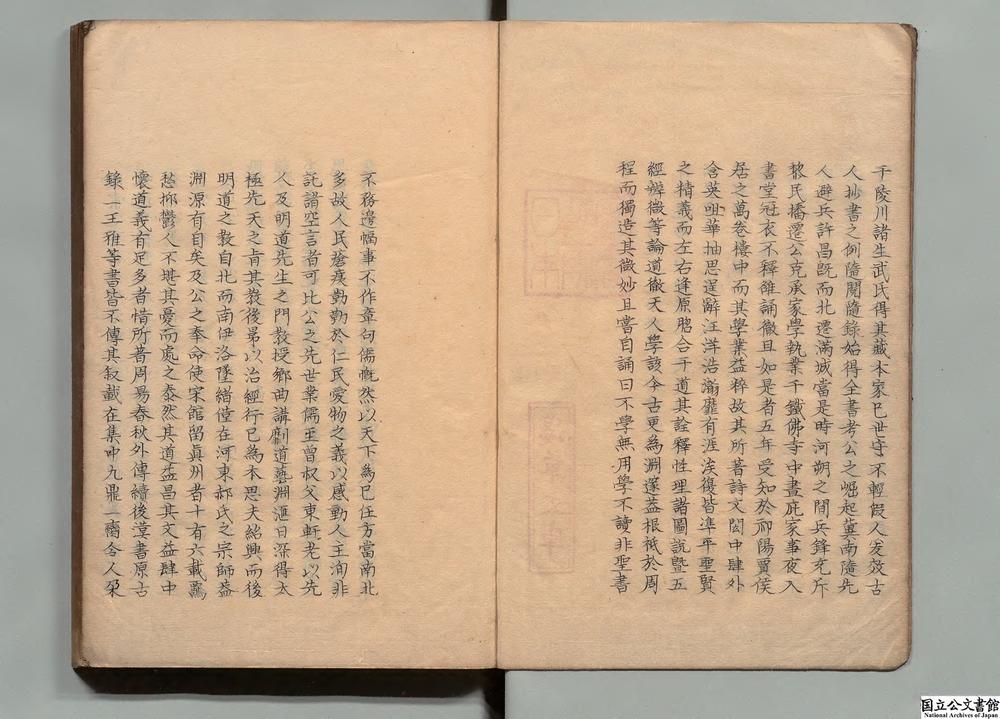 于陵川諸生武氏得其藏本家已世守不輕假人爰效古
人抄書之例隨閱隨錄始得全書考公之崛起冀南隨先
人避兵許昌既而北遷滿城當是時河朔之間兵鋒充斥
黎民播遷公克承家學執業于鐵佛寺中晝庇家事夜入
書堂冠衣不釋雒誦徹旦如是者五年受知於祁陽賈侯
居之萬卷樓中而其學業益粹故其所著詩文閎中肆外
含英咀華抽思逞辭汪洋浩瀚靡有涯涘復皆準平聖賢
之精義而左右逢原脗合于道其詮釋性理諸圖說暨五
經辨微等論道徹天人學該今古更為淵邃葢根祗於周
程而獨造其微妙且嘗自誦曰不學無用學不讀非聖書
不務邊幅事不作章句儒慨然以天下為已任方當南北
多故人民瘡痍勤勤於仁民愛物之義以感動人王洵非
託諸空言者可比公之先世業儒至曾叔父東軒老以先
人及明道先生之門教授鄉曲講劘道藝淵滙日深得太
極先天之旨其教後昇以治經行已為本思夫紹興而後
明道之教自北而南伊洛墜緒僅在河東郝氏之宗師葢
淵源有自矣及公之奉命使宋館留眞州者十有六載羈
愁抑鬱人不堪其憂而處之泰然其道益昌其文益肆中
懷道義有足多者惜所著周易春秋外傳續後漢書原古
錄一王雅等書皆不傳其叙載在集中九鼎一臠令人朶
国立公文書館
National Archives of Japan